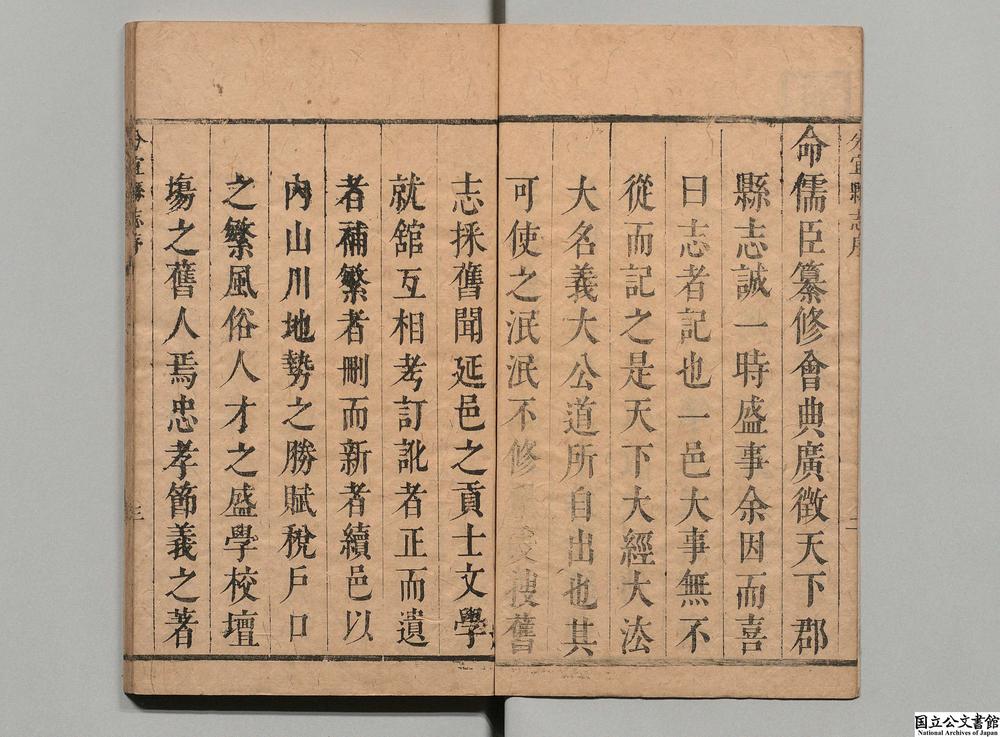 分宜縣志序
二
命儒臣纂修會典廣徵天下郡
縣志誠一時盛事余因而喜
曰志者記也一邑大事無不
從而記之是天下大經大法
大名義大公道所自出也其
可使之泯泯不修爰搜舊
志採舊聞延邑之貢士文學
就舘互相考訂訛者正而遺
者補繁者刪而新者續邑以
內山川地勢之勝賦稅戶口
之繁風俗人才之盛學校壇
塲之舊人焉忠孝節義之著
分宜縣志序
三
国立公文書館
National Archives of Japan